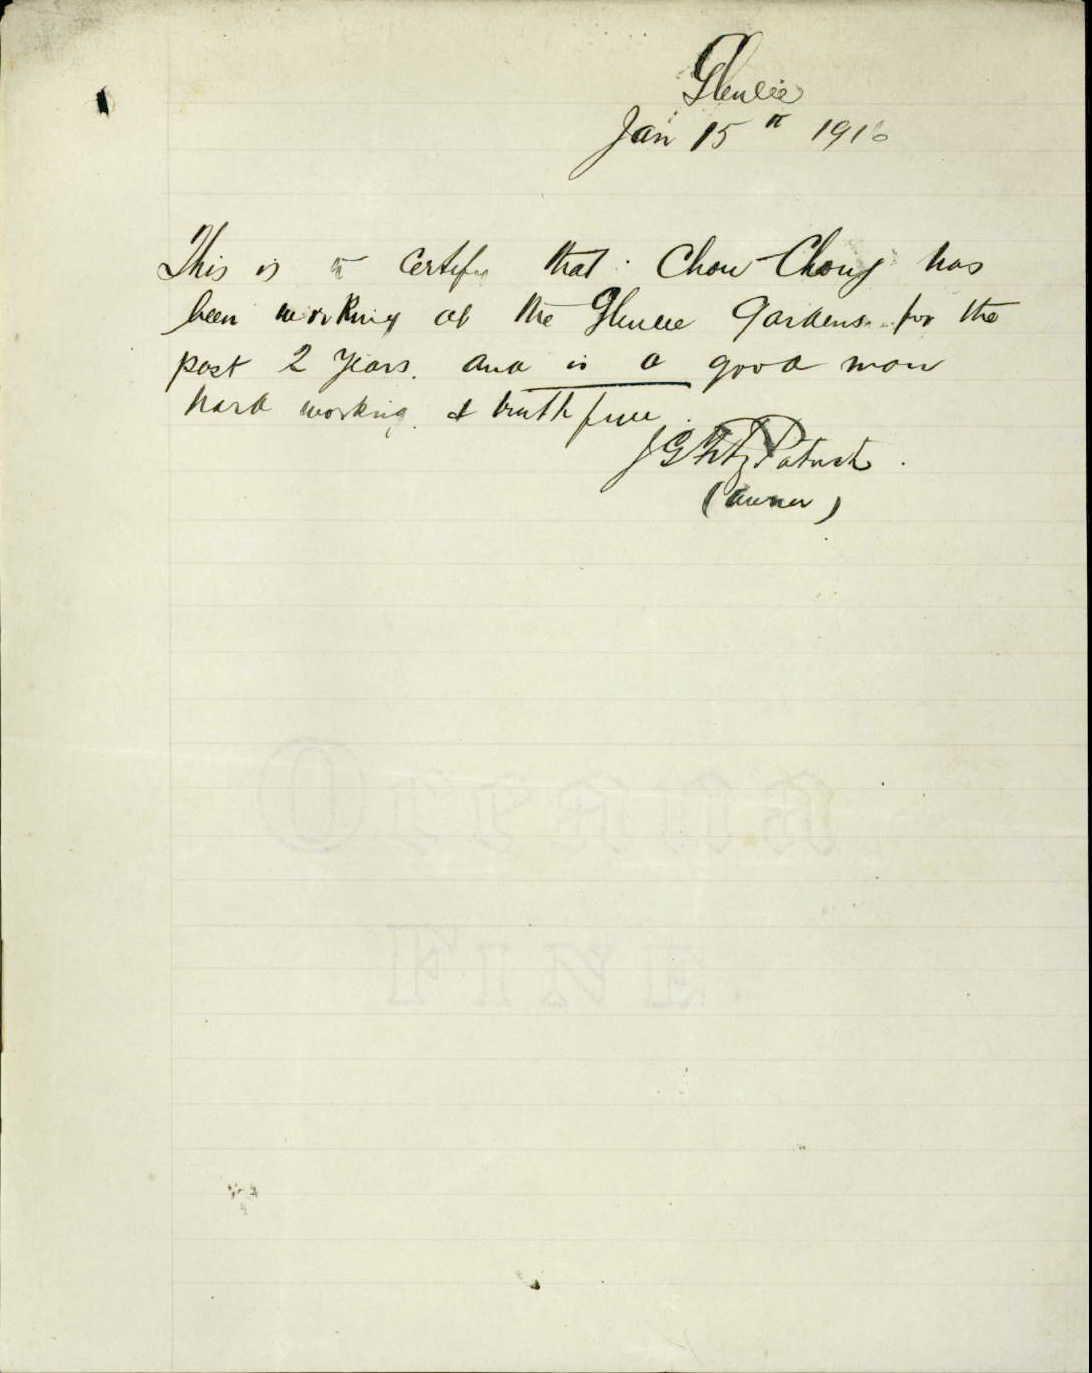 Glenlee
Jan 15th 1916
This is to Certify that Chow Chong has
been working at the Glenlee Gardens for the
past 2 years. and is a good man
hard working & truthfull.
J G FitzPatrick.
(Owner)
Ottoman
Fine